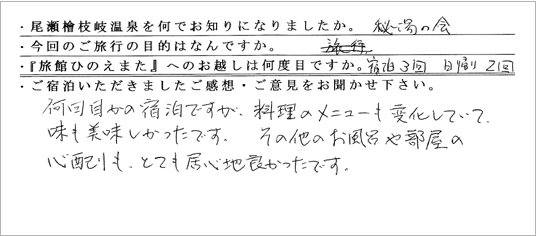 ・尾瀬檜枝岐温泉を何でお知りになりましたか。 秘湯の会
・今回のご旅行の目的はなんですか。 旅行
・『旅館ひのえまた』へのお越しは何度目ですか。宿泊3回 日帰り2回
・ご宿泊いただきましたご感想・ご意見をお聞かせ下さい。
何回目かの宿泊ですが、料理のメニューも変化していて、
味も美味しかったです。 その他のお風呂や部屋の
心配りも、とても居心地良かったです。